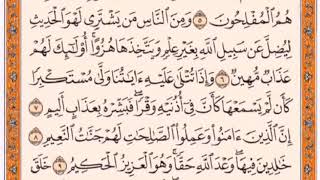 هُمُ ٱلْمُفْلِحُونَ ۝٥ وَمِنَ ٱلنَّاسِ مَن يَشْتَرِى لَهْوَ ٱلْحَدِيثِ
لِيُضِلَّ عَن سَبِيلِ ٱللَّهِ بِغَيْرِ عِلْمٍ وَيَتَّخِذَهَا هُزُوًا ۚ أُو۟لَـٰٓئِكَ لَهُمْ
عَذَابٌ مُّهِينٌ ۝٦ وَإِذَا تُتْلَىٰ عَلَيْهِ ءَايَـٰتُنَا وَلَّىٰ مُسْتَكْبِرًا
كَأَن لَّمْ يَسْمَعْهَا كَأَنَّ فِىٓ أُذُنَيْهِ وَقْرًا ۖ فَبَشِّرْهُ بِعَذَابٍ أَلِيمٍ ۝٧
إِنَّ ٱلَّذِينَ ءَامَنُوا۟ وَعَمِلُوا۟ ٱلصَّـٰلِحَـٰتِ لَهُمْ جَنَّـٰتُ ٱلنَّعِيمِ ۝٨
خَـٰلِدِينَ فِيهَا ۖ وَعْدَ ٱللَّهِ حَقًّا ۚ وَهُوَ ٱلْعَزِيزُ ٱلْحَكِيمُ ۝٩ خَلَقَ